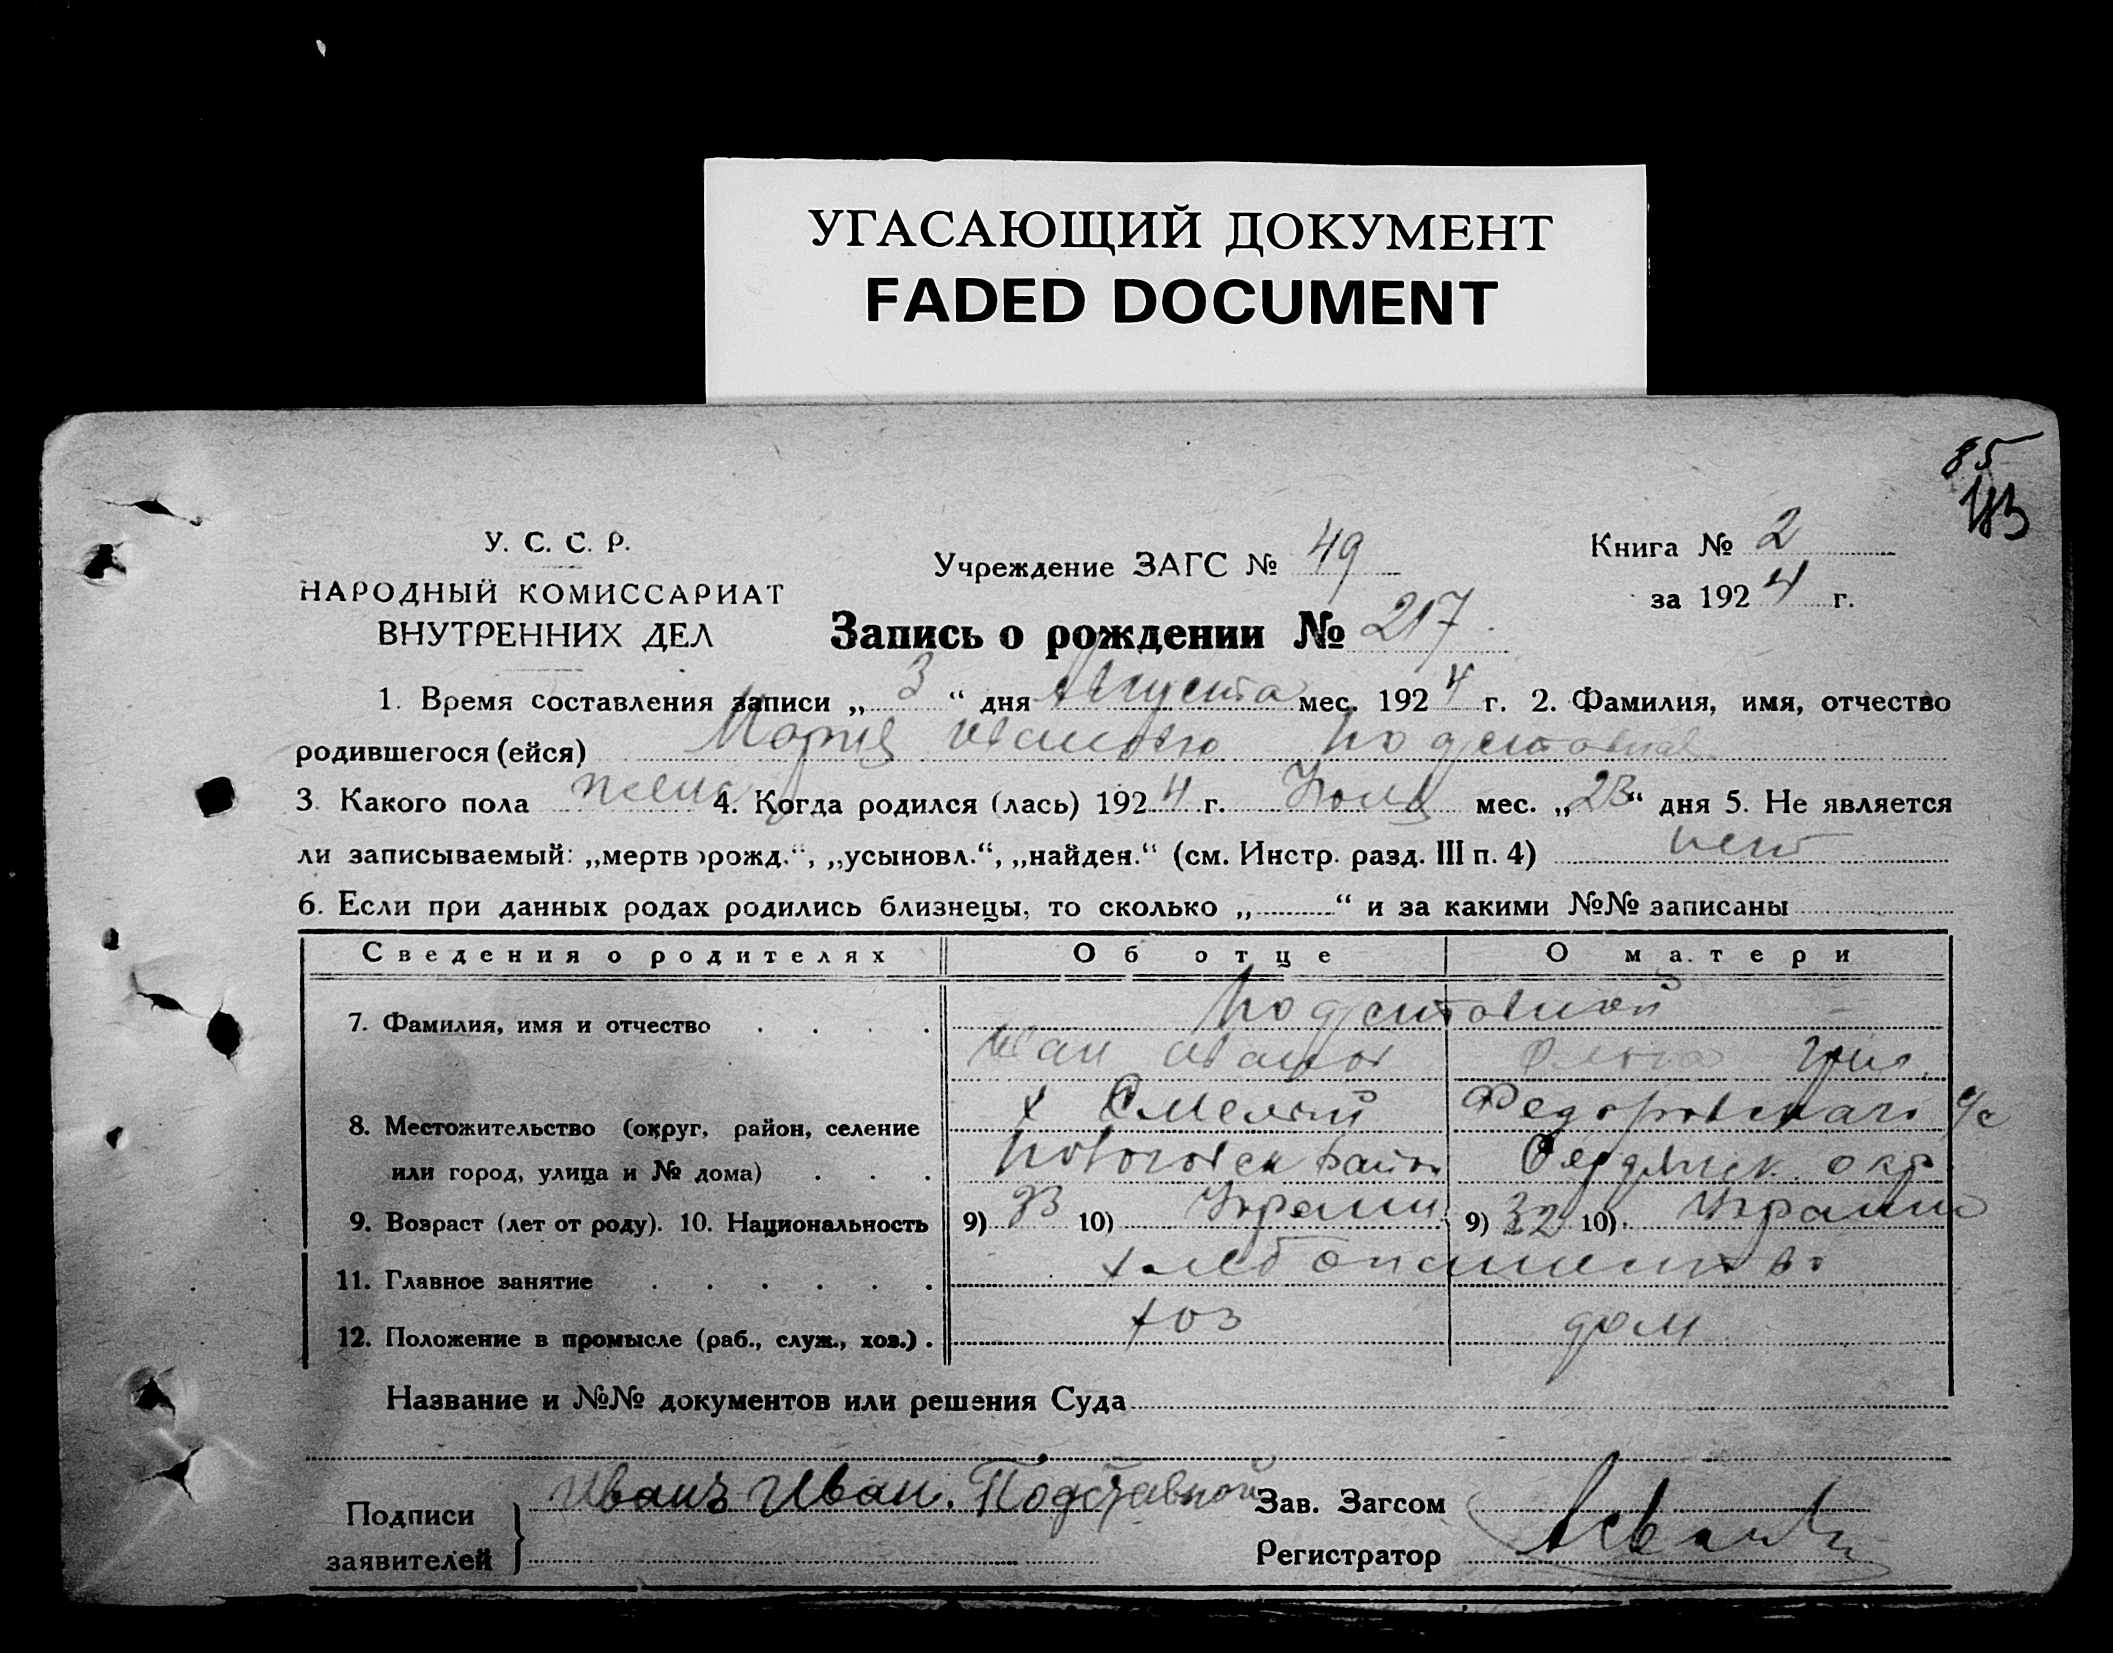 УГАСАЮЩИЙ ДОКУМЕНТ
FADED DOCUMENT
85
У. С. С. Р.
НАРОДНЫЙ КОМИССАРИАТ
ВНУТРЕННИХ ДЕЛ
Учреждение ЗАГС № 49
Книга № 2
за 1924 г.
Запись о рождении № 217
1. Время составления записи „3“ дня Августа мес. 1924 г. 2. Фамилия, имя, отчество
родившегося (ейся) Мария Ивановна Подставная
3. Какого пола женс 4. Когда родился (лась) 1924 г. мес. „23“ дня 5. Не является
ли записываемый: „мертворожд.“, „усыновл.“, „найден.“ (см. Инстр. разд. III п. 4) нет
6. Если при данных родах родились близнецы, то сколько „ “ и за какими №№ записаны
Сведения о родителях Об отце О матери
7. Фамилия, имя и отчество Подставной
Иван Иванов
8. Местожительство (округ, район, селение х Смелый Федоровскаго с/с
или город, улица и № дома) район окр.
9. Возраст (лет от роду). 10. Национальность 9) 33 10) Украин 9) 32 10) Украин
11. Главное занятие хлебопашество
12. Положение в промысле (раб., служ., хоз.) хоз дом
Название и №№ документов или решения Суда
Подписи заявителей } Иванъ Иван. Подставной
Зав. Загсом
Регистратор